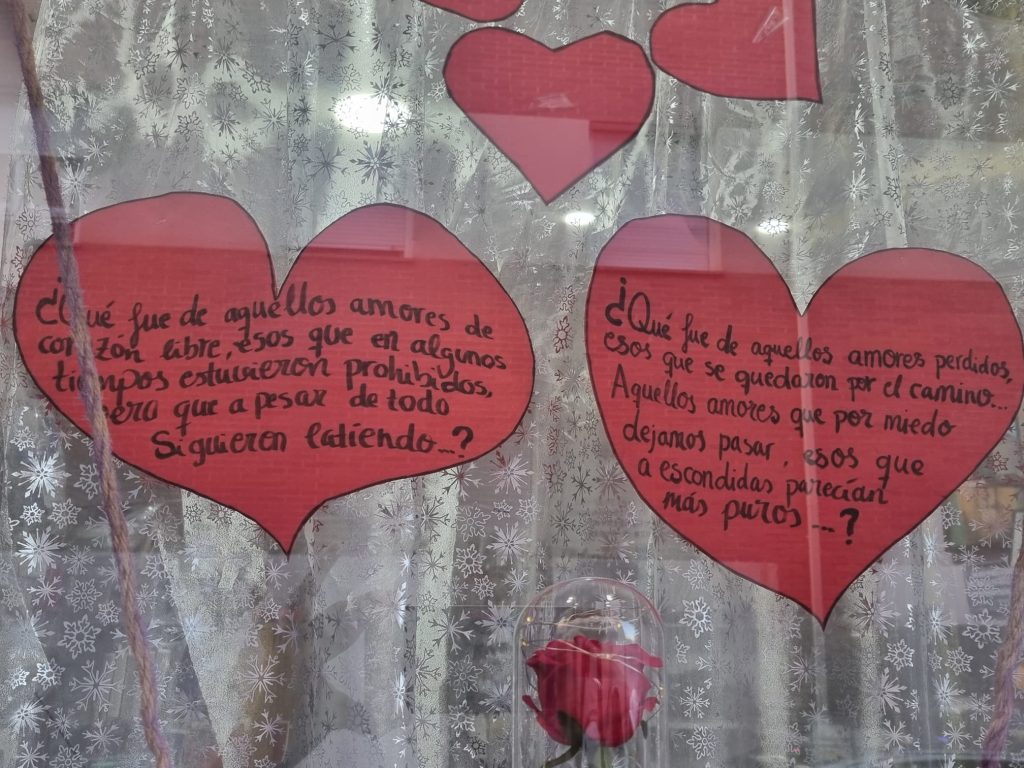 ¿Qué fue de aquellos amores de
corazón libre, esos que en algunos
tiempos estuvieron prohibidos,
pero que a pesar de todo
Siguieron latiendo...?
¿Qué fue de aquellos amores perdidos,
esos que se quedaron por el camino...
Aquellos amores que por miedo
dejamos pasar, esos que
a escondidas parecían
más puros...?